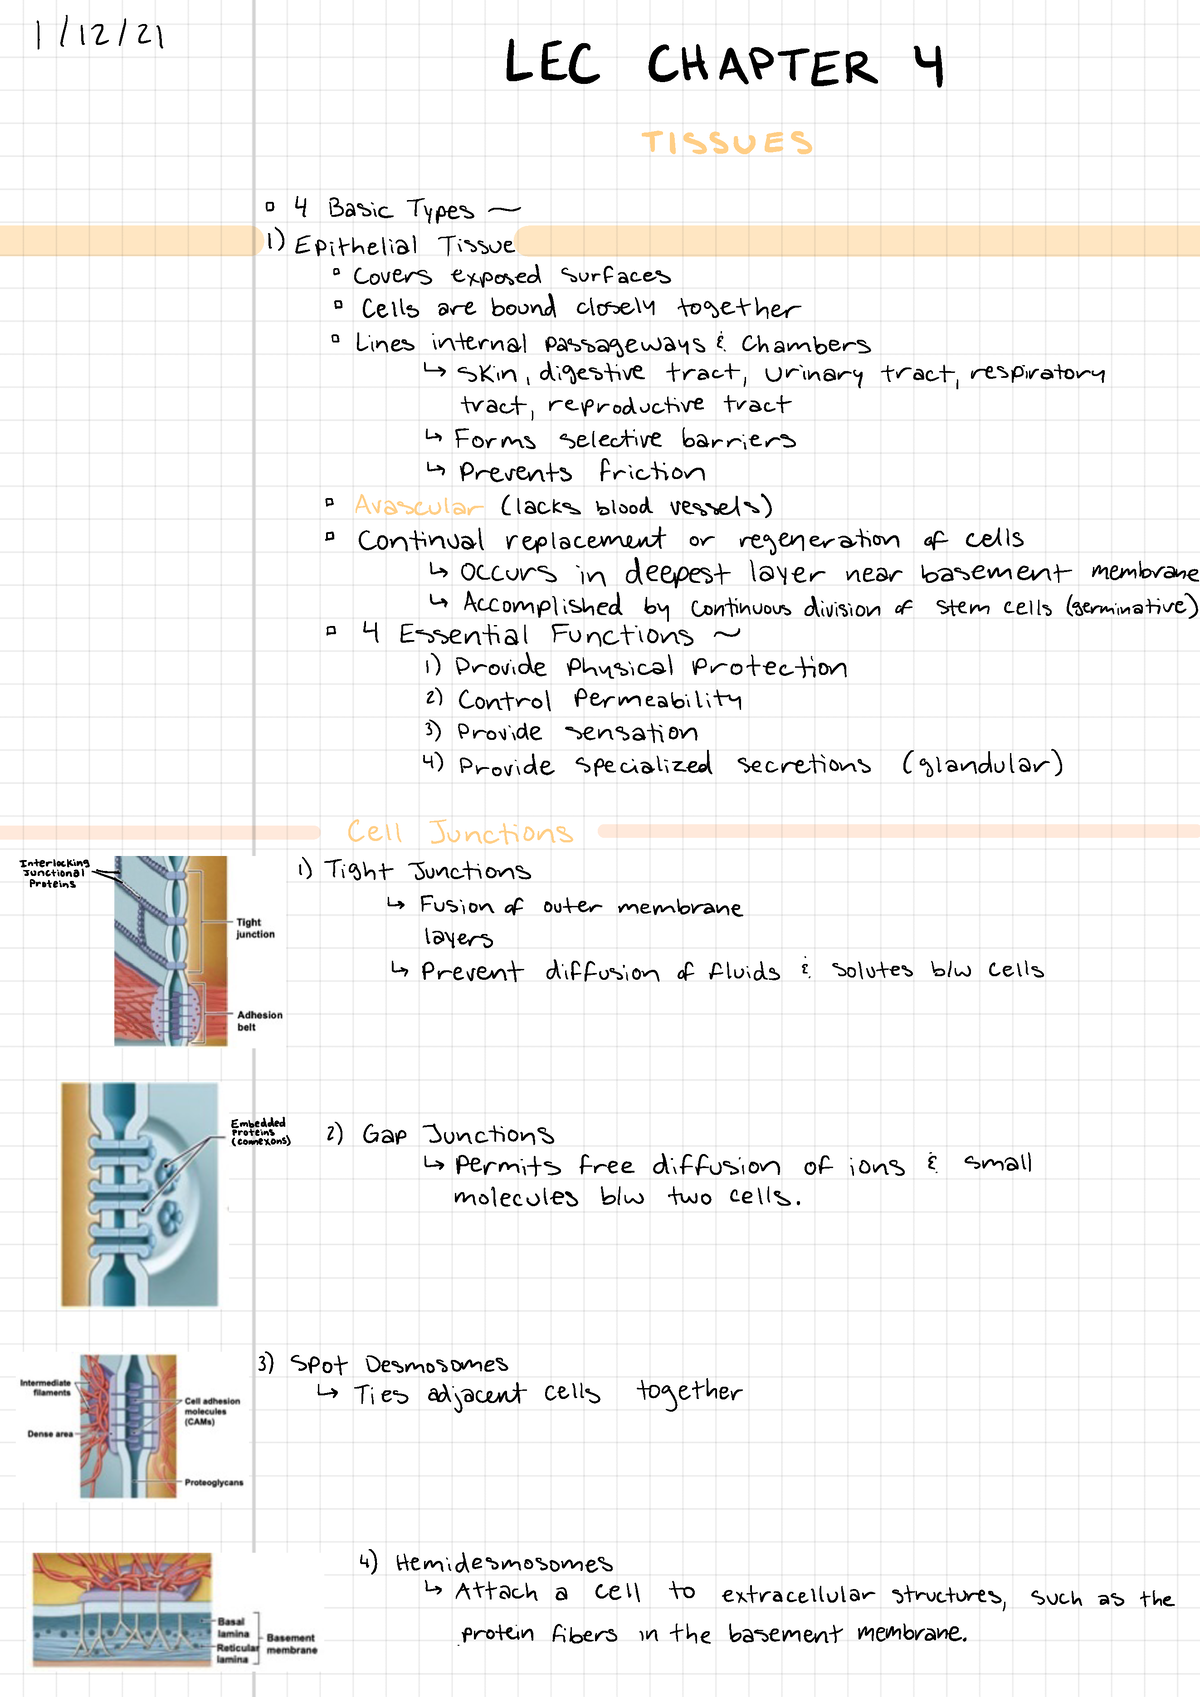 1/12/21
LEC CHAPTER 4
TISSUES
▫ 4 Basic Types ~
1) Epithelial Tissue
▫ Covers exposed surfaces
▫ Cells are bound closely together
▫ Lines internal passageways & chambers
↳ Skin, digestive tract, urinary tract, respiratory
tract, reproductive tract
↳ Forms selective barriers
↳ Prevents friction
▫ Avascular (lacks blood vessels)
▫ Continual replacement or regeneration of cells
↳ occurs in deepest layer near basement membrane
↳ Accomplished by continuous division of stem cells (germinative)
▫ 4 Essential Functions ~
1) Provide Physical Protection
2) Control Permeability
3) Provide sensation
4) Provide specialized secretions (glandular)
Cell Junctions
Interlocking
Junctional
Proteins
Tight
junction
Adhesion
belt
1) Tight Junctions
↳ Fusion of outer membrane
layers
↳ Prevent diffusion of fluids & solutes b/w cells
Embedded
Proteins
(connexons)
2) Gap Junctions
↳ Permits free diffusion of ions & small
molecules b/w two cells.
3) Spot Desmosomes
↳ Ties adjacent cells together
Intermediate
filaments
Dense area
Cell adhesion
molecules
(CAMs)
Proteoglycans
4) Hemidesmosomes
↳ Attach a cell to extracellular structures, such as the
protein fibers in the basement membrane.
Basal
lamina
Reticular
lamina
Basement
membrane